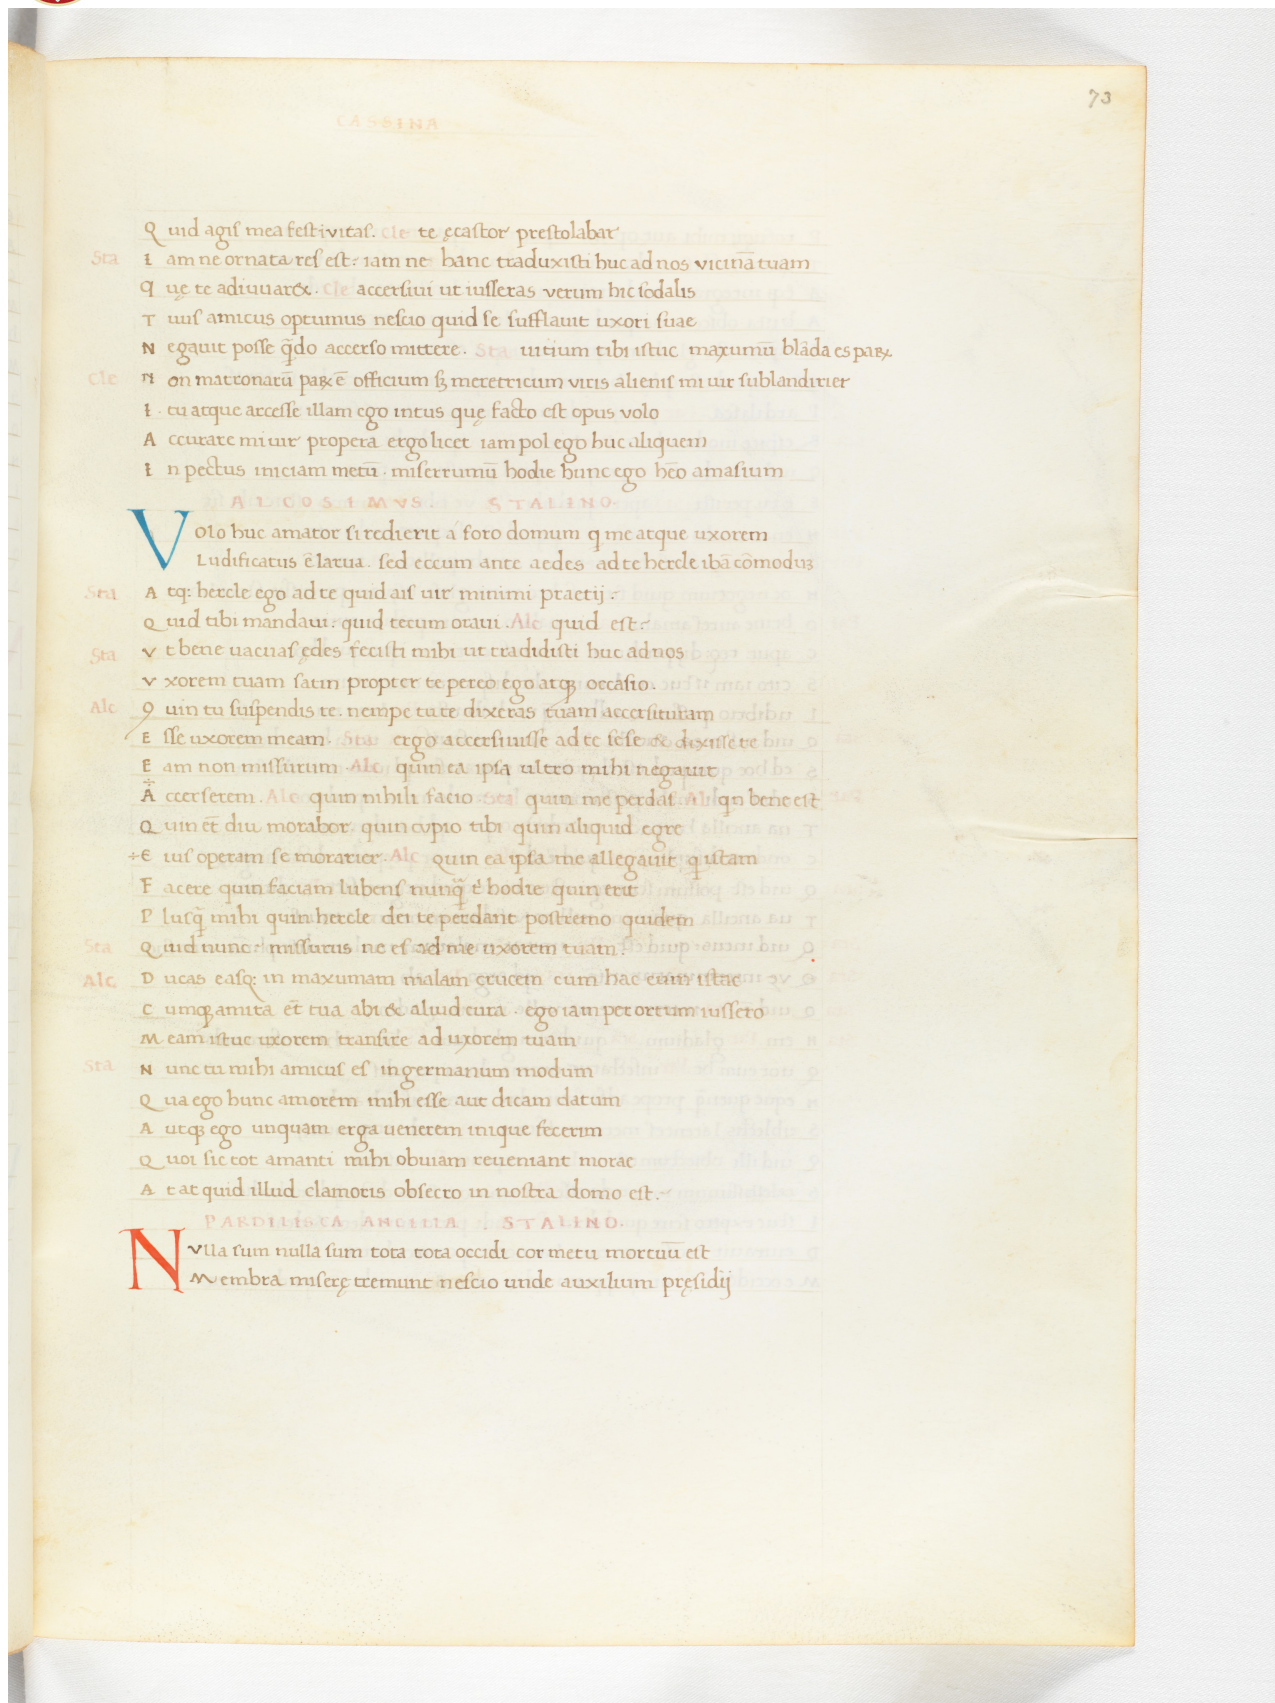 73
CASSINA
Quid agis mea festivitas. Cle te ęcastor prestolabar
Sta Iam ne ornata res est: iam ne hanc traduxisti huc ad nos vicinā tuam
Quę te adiuuaret. Cle accersiui ut iusseras verum hic sodalis
Tuus amicus optumus nescio quid se sufflauit uxori suae
Negauit posse q̄do accerso mittere. Sta uitium tibi istuc maxumū blāda es parꝝ
Cle Non matronarū parꝝ ē officium sꝫ meretricum viris alienis mi uir sublandirier
I tu atque arcesse illam ego intus quę facto est opus volo
Accurare mi uir propera ergo licet iam pol ego huc aliquem
In pectus iniciam metū. miserrumū hodie hunc ego hēo amasium
ALCOSIMVS. STALINO.
Volo huc amator si redierit á foro domum q me atque uxorem
Ludificatus ē larua. sed eccum ante aedes ad te hercle ibā cōmodūꝫ
Sta Atq: hercle ego ad te quid ais uir minimi praetij:
Quid tibi mandaui: quid tecum oraui. Alc quid est:
Sta Vt bene uacuas ędes fecisti mihi ut tradidisti huc ad nos
Vxorem tuam satin propter te pereo ego atqꝫ occasio.
Alc Quin tu suspendis te. nempe tu te dixeras tuam accersituram
Esse uxorem meam. Sta ergo accersiuisse ad te sese & dixisse te
Eam non missurum. Alc quin ea ipsa ultro mihi negauit
Accerserem. Alc quin nihili facio. Sta quin me perdas. Al qn bene est
Quin et̄ diu morabor. quin cupio tibi quin aliquid egre
÷Eius operam se morarier. Alc Quin ea ipsa me allegauit q istam
Facere quin faciam lubens nunq̄ t' hodie quin erit
Plusq̄ mihi quin hercle dei te perdant postremo quidem
Sta Quid nunc: missurus ne es ad me uxorem tuam:
Alc Ducas easq: in maxumam malam crucem cum hac cum istac
Cumqꝫ amita et̄ tua abi & aliud cura. ego iam per ortum iussero
Meam istuc uxorem transire ad uxorem tuam
Sta Nunc tu mihi amicus es in germanum modum
Qua ego hunc amorem mihi esse aut dicam datum
Autqꝫ ego unquam erga uenerem inique fecerim
Quoi sic tot amanti mihi obuiam reueniant morae
Atat quid illud clamoris obsecro in nostra domo est.
PARDILISCA ANCILLA. STALINO.
Nulla sum nulla sum tota tota occidi cor metu mortuū est
Membra miserę tremunt nescio unde auxilium pręsidij